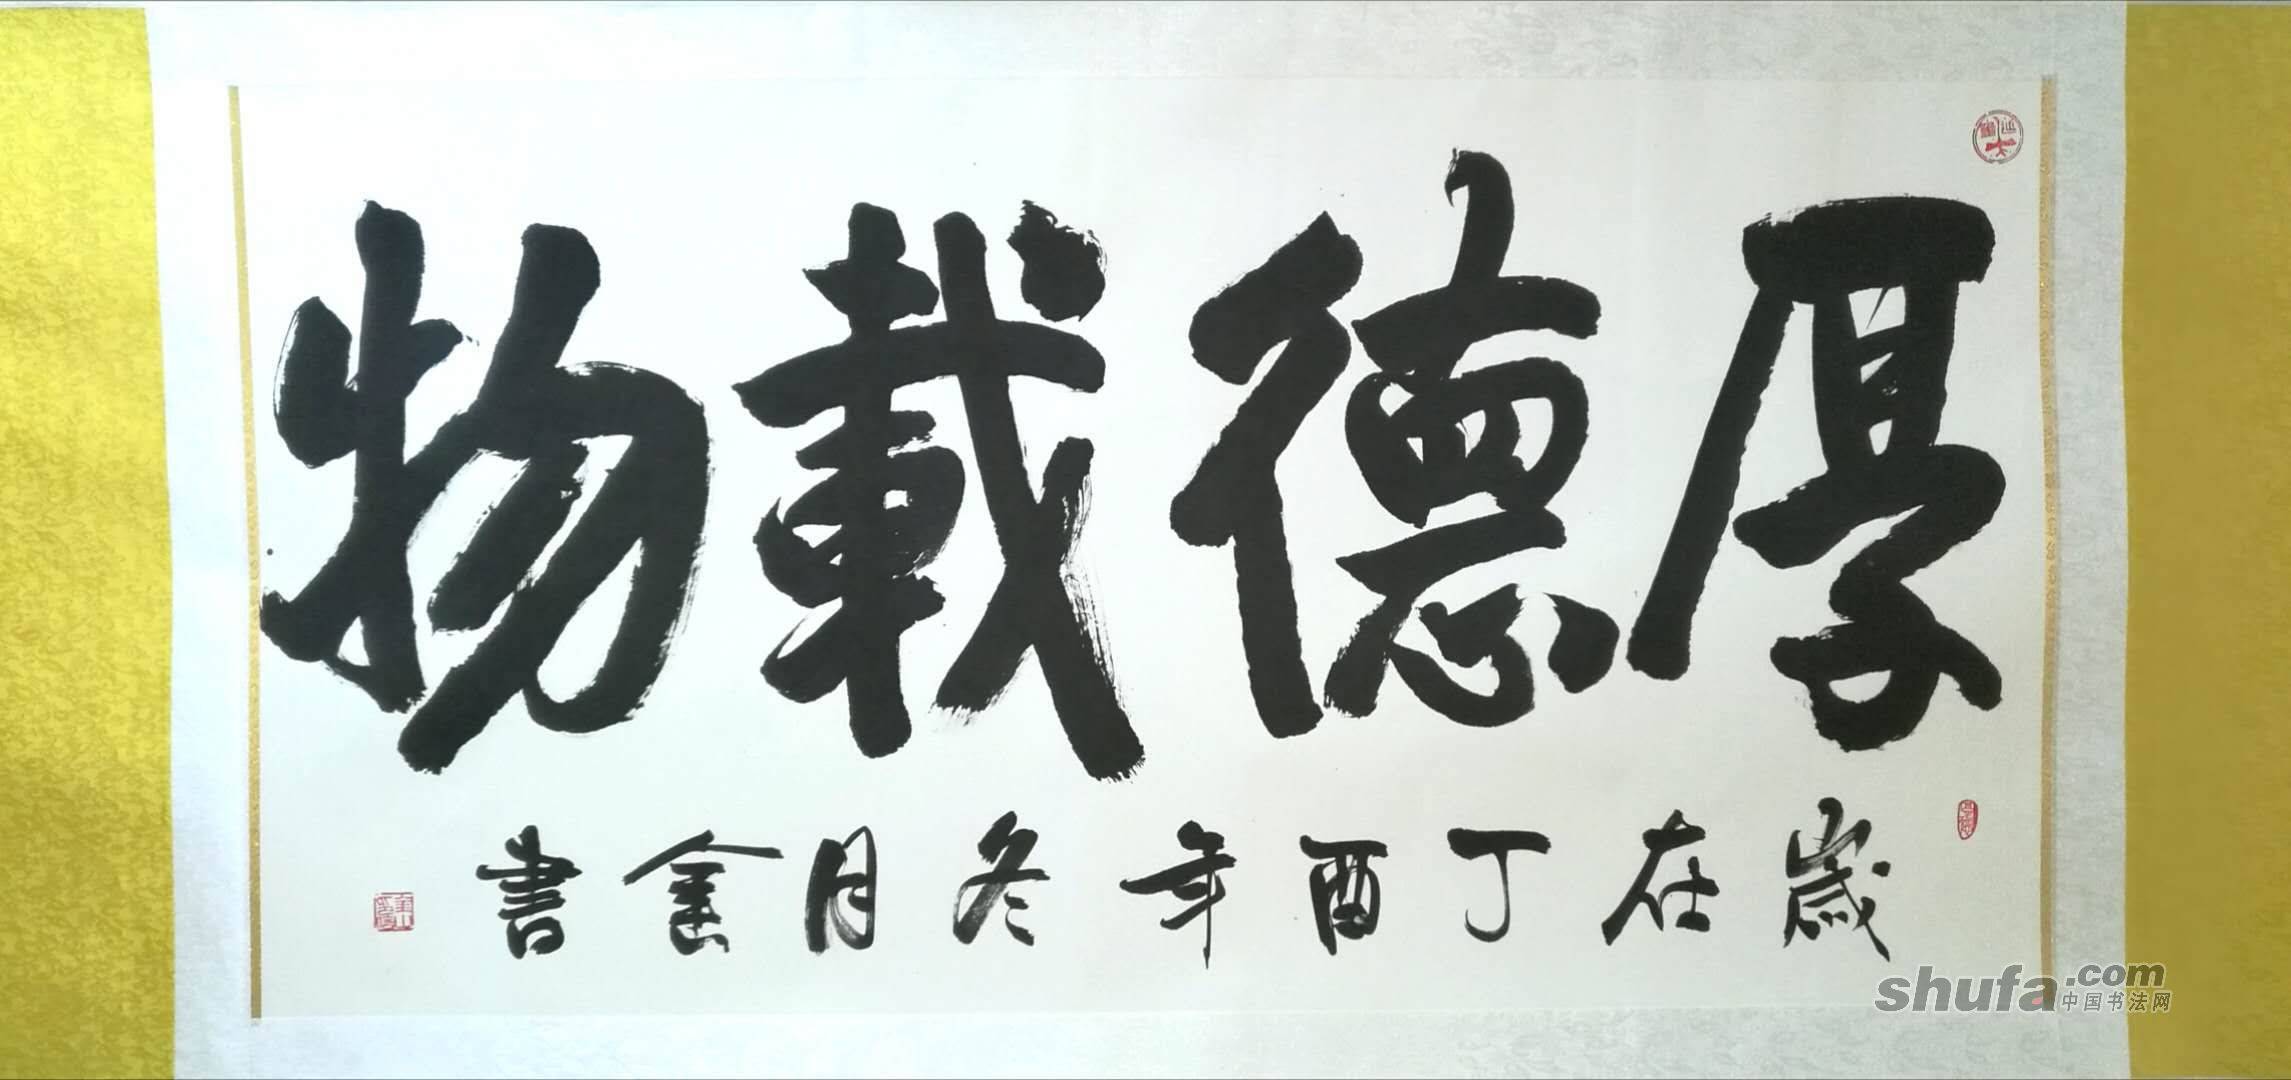 厚德載物
歲在丁酉年冬月金山書
shufa.com
中国书法网